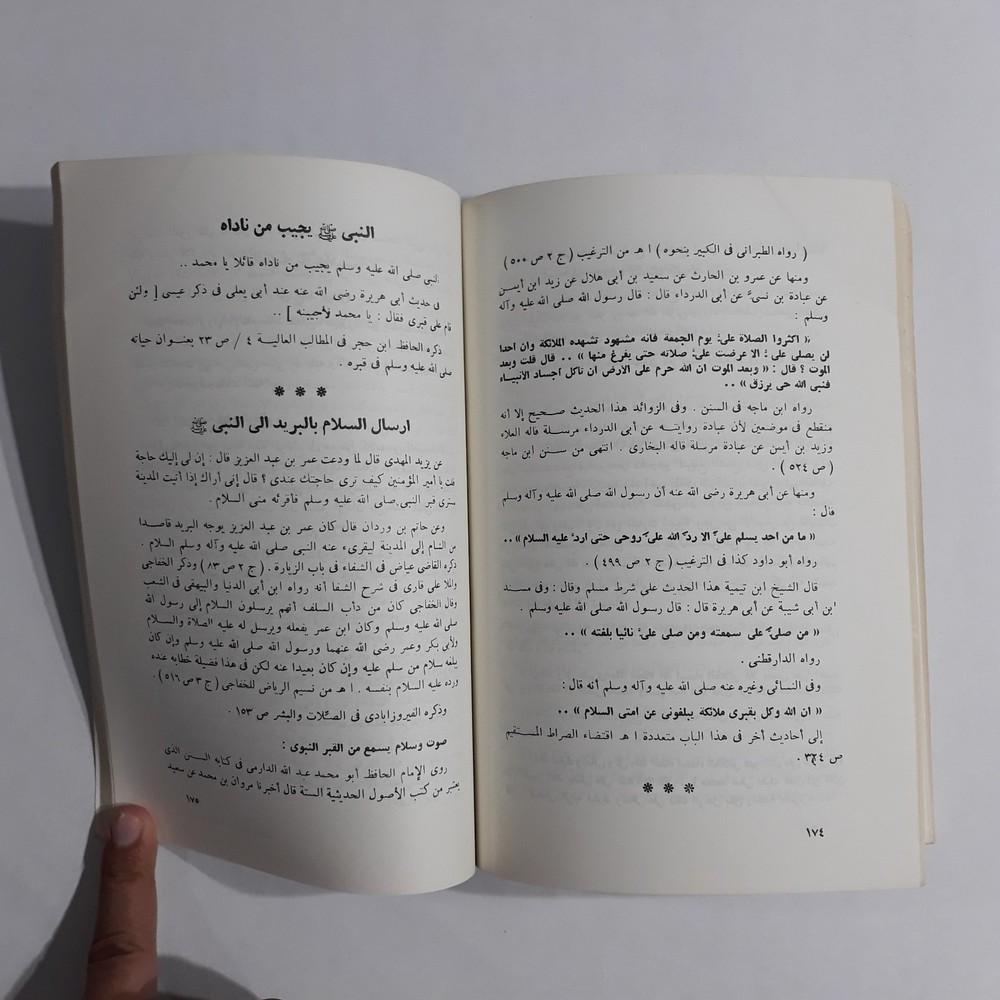 ( رواه الطبرانى فى الكبير بنحوه ) ا هـ من الترغيب ( ج ٢ ص ٥٠٠ )
ومنها عن عمرو بن الحارث عن سعيد بن أبى هلال عن زيد ابن أيمن
عن عبادة بن نسىّ عن أبى الدرداء قال : قال رسول الله صلى الله عليه وآله
وسلم :
« اكثروا الصلاة علىّ يوم الجمعة فانه مشهود تشهده الملائكة وان احدا
لن يصلى علىّ الا عرضت علىّ صلاته حتى يفرغ منها » .. قال قلت وبعد
الموت ؟ قال : « وبعد الموت ان الله حرم على الأرض ان تاكل اجساد الأنبيـاء
فنبى الله حى يرزق » ..
رواه ابن ماجه فى السنن . وفى الزوائد هذا الحديث صحيح إلا أنه
منقطع فى موضعين لأن عبادة روايتـه عن أبى الدرداء مرسلة قاله العلاء
وزيد بن أيمن عن عبادة مرسلة قاله البخارى . انتهى من سنن ابن ماجه
( ص ٥٢٤ ) .
ومنها عن أبى هريرة رضى الله عنه أن رسول الله صلى الله عليه وآله وسلم
قال :
« ما من احد يسلم علىّ الا ردّ الله علىّ روحى حتى اردّ عليه السلام » ..
رواه أبو داود كذا فى الترغيب ( ج ٢ ص ٤٩٩ ) .
قال الشيخ ابن تيمية هذا الحديث على شرط مسلم وقال : وفى مسند
ابن أبى شيبة عن أبى هريرة قال : قال رسول الله صلى الله عليه وسلم .
« من صلىّ على سمعته ومن صلى علىّ نائيا بلغته » ..
رواه الدارقطنى .
وفى النسائى وغيره عنه صلى الله عليه وآله وسلم أنه قال :
« ان الله وكل بقبرى ملائكة يبلغونى عن امتى السلام » ..
إلى أحاديث أخر فى هذا الباب متعددة ا هـ اقتضاء الصراط المستقيم
ص ٣٢٤ .
* * *
١٧٤
النبى ﷺ يجيب من ناداه
النبى صلى الله عليه وسلم يجيب من ناداه قائلا يا محمد ..
فى حديث أبى هريرة رضى الله عنه عند أبى يعلى فى ذكر عيسى [ ولئن
قام على قبرى فقال : يا محمد لأجيبنه ] ..
ذكره الحافظ ابن حجر فى المطالب العالية ٤ / ص ٢٣ بعنـوان حياته
صلى الله عليه وسلم فى قبره .
* * *
ارسال السلام بالبريد الى النبى ﷺ
عن يزيد المهدى قال لما ودعت عمر بن عبد العزيز قال : إن لى إليك حاجة
قلت يا أمير المؤمنين كيف ترى حاجتك عندى ؟ قال إنى أراك إذا أتيت المدينة
سترى قبر النبى صلى الله عليه وسلم فأقرئه منى السلام .
وعن حاتم بن وردان قال كان عمر بن عبد العزيز يوجه البريد قاصـدا
من الشام إلى المدينة ليقرىء عنه النبى صلى الله عليه وآله وسلم السلام .
ذكره القاضى عياض فى الشفاء فى باب الزيارة . ( ج ٢ ص ٨٣ ) وذكر الخفاجى
والملا على قارى فى شرح الشفا أنه رواه ابن أبى الدنيا والبيهقى فى الشعب
وقال الخفاجى كان من دأب السلف أنهم يرسلون السلام إلى رسول الله
صلى الله عليه وسلم وكان ابن عمر يفعله ويرسل له عليه الصلاة والسلام
ولأبى بكر وعمر رضى الله عنهما ورسول الله صلى الله عليه وسلم وإن كان
يبلغه سلام من سلم عليه وإن كان بعيدا عنه لكن فى هذا فضيلة خطابه عنده
ورده عليه السلام بنفسه . ا هـ من نسيم الرياض للخفاجى ( ج ٣ ص ٥١٦ ) .
وذكره الفيروزابادى فى الصّلات والبشر ص ١٥٣ .
صوت وسلام يسمع من القبر النبوى :
روى الإمام الحافظ أبو محمد عبد الله الدارمى فى كتابه السـنن الذى
يعتبر من كتب الأصول الحديثية الستة قال أخبرنا مروان بن محمد عن سعيد
١٧٥